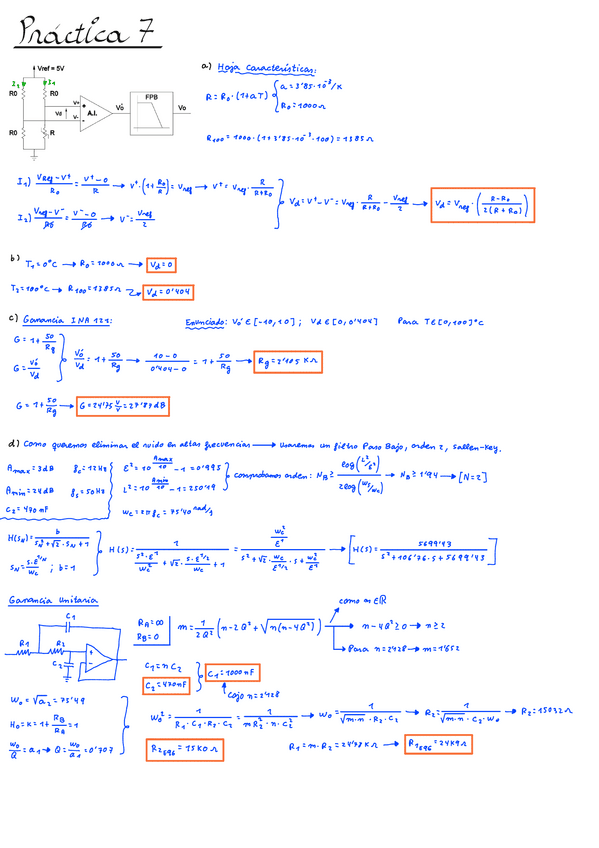 Práctica 7
Vref = 5V
I2 I1
R0 R0
V+
Vd
V-
A.I.
Vó
FPB
Vo
R0 R
a) Hoja Características:
R = R0 · (1+aT) { a = 3'85·10^-3/K
R0 = 1000 Ω
R100 = 1000 · (1+3'85·10^-3·100) = 1385 Ω
I1) (VRef - V+)/R0 = (V+ - 0)/R → V+·(1 + R0/R) = Vref → V+ = Vref · R/(R+R0)
I2) (Vref - V-)/R0 = (V- - 0)/R0 → V- = Vref/2
Vd = V+ - V- = Vref · R/(R+R0) - Vref/2 → Vd = Vref · ((R-R0)/(2(R+R0)))
b) T1 = 0°C → R0 = 1000 Ω → Vd = 0
T2 = 100°C → R100 = 1385 Ω → Vd = 0'404
c) Ganancia INA 121: Enunciado: Vó ∈ [-10,10] ; Vd ∈ [0, 0'404] Para T ∈ [0,100]°C
G = 1 + 50/Rg
G = Vó/Vd
Vó/Vd = 1 + 50/Rg → (10-0)/(0'404-0) = 1 + 50/Rg → Rg = 2'105 KΩ
G = 1 + 50/Rg → G = 24'75 V/V = 27'87 dB
d) Como queremos eliminar el ruido en altas frecuencias → usaremos un filtro Paso Bajo, orden 2, Sallen-Key.
Amax = 3dB fc = 12Hz ε² = 10^(Amax/10) - 1 = 0'995
Amin = 24dB fs = 50Hz L² = 10^(Amin/10) - 1 = 250'19
C2 = 470 nF wc = 2πfc = 75'40 rad/s
comprobamos orden: NB ≥ log(L²/ε²)/(2log(ws/wc)) → NB ≥ 1'94 → [N=2]
H(sN) = b/(sN² + √2·sN + 1)
sN = s·ε^(1/N)/wc ; b = 1
H(s) = 1/(s²·ε¹/wc² + √2·s·ε^(1/2)/wc + 1) = (wc²/ε¹)/(s² + √2·wc/ε^(1/2)·s + wc²/ε¹) → [H(s) = 5699'43/(s² + 106'76·s + 5699'43)]
Ganancia Unitaria
C1
R1 R2
C2
RA = ∞
RB = 0
m = 1/(2Q²) (n - 2Q² + √(n(n-4Q²)))
como m ∈ ℝ
→ n - 4Q² ≥ 0 → n ≥ 2
→ Para n = 2'128 → m = 1'652
C1 = n C2
C2 = 470nF
C1 = 1000nF
Cojo n = 2'128
W0 = √a2 = 75'49
H0 = K = 1 + RB/RA = 1
W0/Q = a1 → Q = W0/a1 = 0'707
W0² = 1/(R1·C1·R2·C2) = 1/(mR2²·n·C2²) → W0 = 1/(√(m·n)·R2·C2) → R2 = 1/(√(m·n)·C2·W0) → R2 = 15032 Ω
R2E96 = 15K0 Ω
R1 = m·R2 = 24'78 KΩ → R1E96 = 24K9 Ω